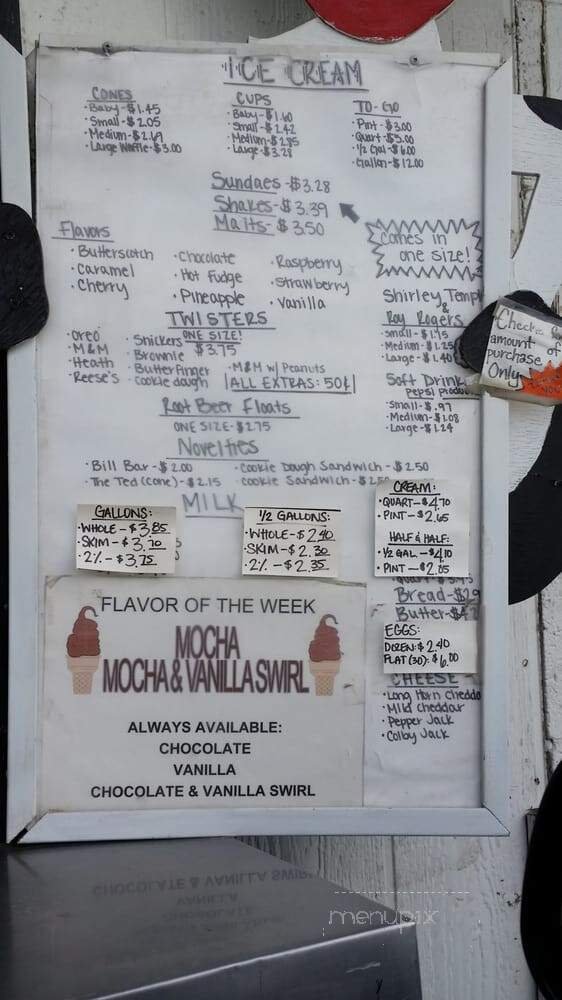 ICE CREAM
CONES
• Baby - $1.45
• Small - $2.05
• Medium - $2.69
• Large Waffle - $3.00
CUPS
• Baby - $1.60
• Small - $2.42
• Medium - $2.85
• Large - $3.28
TO-GO
• Pint - $3.00
• Quart - $5.00
• 1/2 Gal - $6.00
• Gallon - $12.00
Sundaes - $3.28
Shakes - $3.39
Malts - $3.50
Comes in
one size!
Flavors
• Butterscotch
• Caramel
• Cherry
• Chocolate
• Hot Fudge
• Pineapple
• Raspberry
• Strawberry
• Vanilla
TWISTERS
ONE SIZE!
$3.75
• Oreo
• M&M
• Heath
• Reese's
• Snickers
• Brownie
• Butterfinger
• Cookie dough
• M&M w/ Peanuts
ALL EXTRAS: 50¢
Shirley Templ
&
Roy Rogers
• Small - $1.15
• Medium - $1.25
• Large - $1.40
Check
amount of
purchase
Only
Soft Drink
Pepsi produc
• Small - $.97
• Medium - $1.08
• Large - $1.24
Root Beer Floats
ONE SIZE - $2.75
Novelties
• Bill Bar - $2.00
• The Ted (cone) - $2.15
• Cookie Dough Sandwich - $2.50
• Cookie Sandwich - $2
MILK
GALLONS:
• WHOLE - $3.85
• SKIM - $3.70
• 2% - $3.75
1/2 GALLONS:
• WHOLE - $2.40
• SKIM - $2.30
• 2% - $2.35
CREAM:
• QUART - $4.70
• PINT - $2.65
HALF & HALF:
• 1/2 GAL - $4.10
• PINT - $2.05
Bread - $2.9
Butter - $4.2
EGGS:
DOZEN: $2.40
FLAT (30): $6.00
CHEESE
• Long Horn Chedda
• Mild Cheddar
• Pepper Jack
• Colby Jack
FLAVOR OF THE WEEK
MOCHA
MOCHA & VANILLA SWIRL
ALWAYS AVAILABLE:
CHOCOLATE
VANILLA
CHOCOLATE & VANILLA SWIRL
menupix